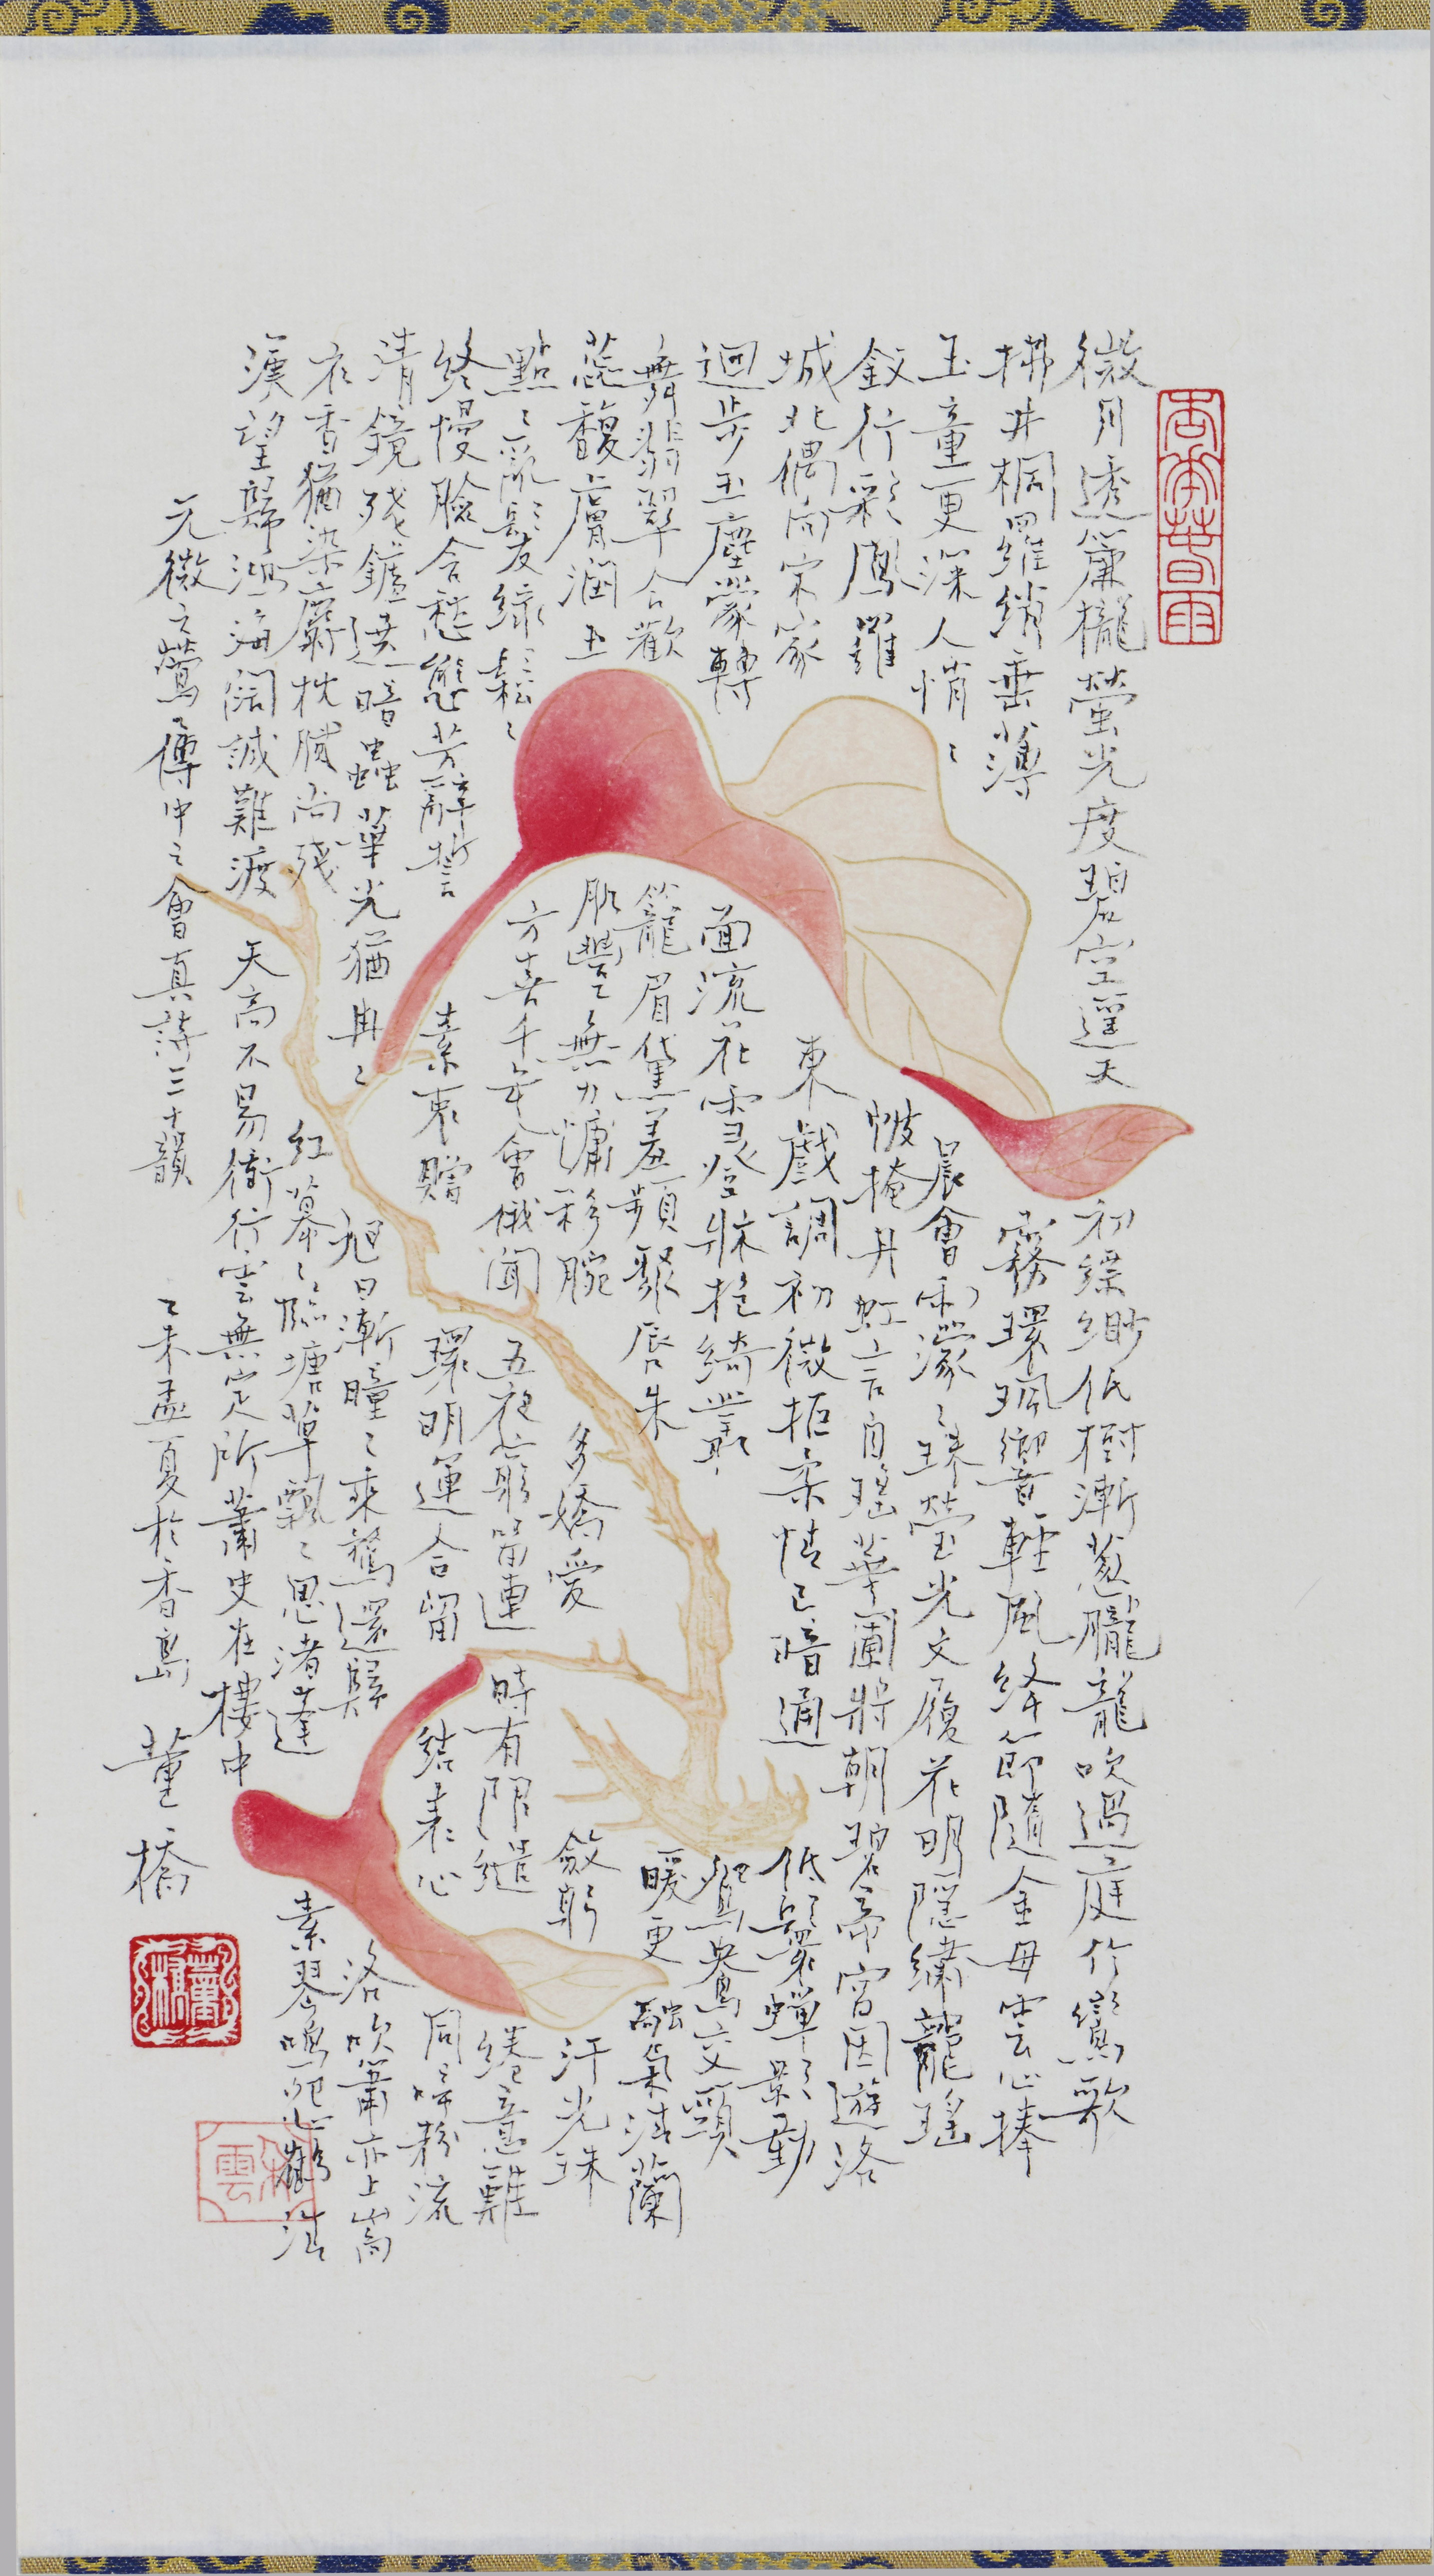 微月透簾櫳螢光度碧空遙天初縹緲低樹漸蔥朧龍吹過庭竹鸞歌
拂井桐羅綃垂薄霧環珮響輕風絳節隨金母雲心捧
玉童更深人悄〻晨會雨濛〻珠瑩光文履花明隱繡龍瑤
釵行彩鳳羅帔掩丹虹言自瑤華圃將朝碧帝宮因遊洛
城北偶向宋家東戲調初微拒柔情已暗通低鬟蟬影動
迴步玉塵蒙轉面流花雪登牀抱綺叢鴛鴦交頸
舞翡翠合歡籠眉黛羞頻聚唇朱暖更融氣清蘭
蕊馥膚潤玉肌豐無力慵移腕多嬌愛斂躬汗光珠
點〻亂髮綠鬆〻方喜千年會俄聞五夜窮留連時有限繾綣意難
終慢臉含愁態芳辭誓素衷贈環明運合留結表心同啼粉流
清鏡殘鐙遶暗蟲華光猶冉〻旭日漸曈〻乘鶩還歸洛吹簫亦上嵩
衣香猶染麝枕膩尚殘紅幕〻臨塘草飄〻思渚蓬素琴鳴怨鶴清
漢望歸鴻海闊誠難渡天高不易衝行雲無定所蕭史在樓中
元微之鶯〻傳中之會真詩三十韻 乙未孟夏於香島 董橋
董橋